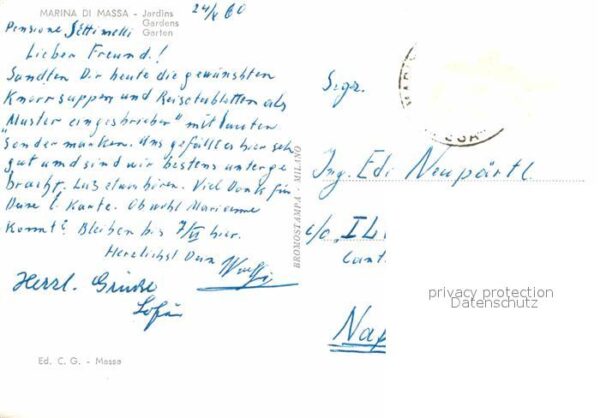 MARINA DI MASSA - Jardins
Gardens
Garten
24/V 60
Pensione Settimelli
Lieber Freund!
Sandten Dir heute die gewünshten
Knorrsuppen und Reisetabletten als
"Muster eingeschrieben" mit lauten
Sondermarken. Uns gefällt es hier sehr
gut und sind wir bestens unterge
bracht. Lass etwas hören. Viel Dank für
Deine l. Karte. Ob wohl Marianne
kommt? Bleiben bis 7/VI hier.
Herzlichst Dein
Herzl. Grüsse
Sofie
Ed. C. G. - Massa
BROMOSTAMPA - MILANO
Sigr.
Ing. Edi Neupärtl
c/o "IL
Cant
Nap
privacy protection
Datenschutz